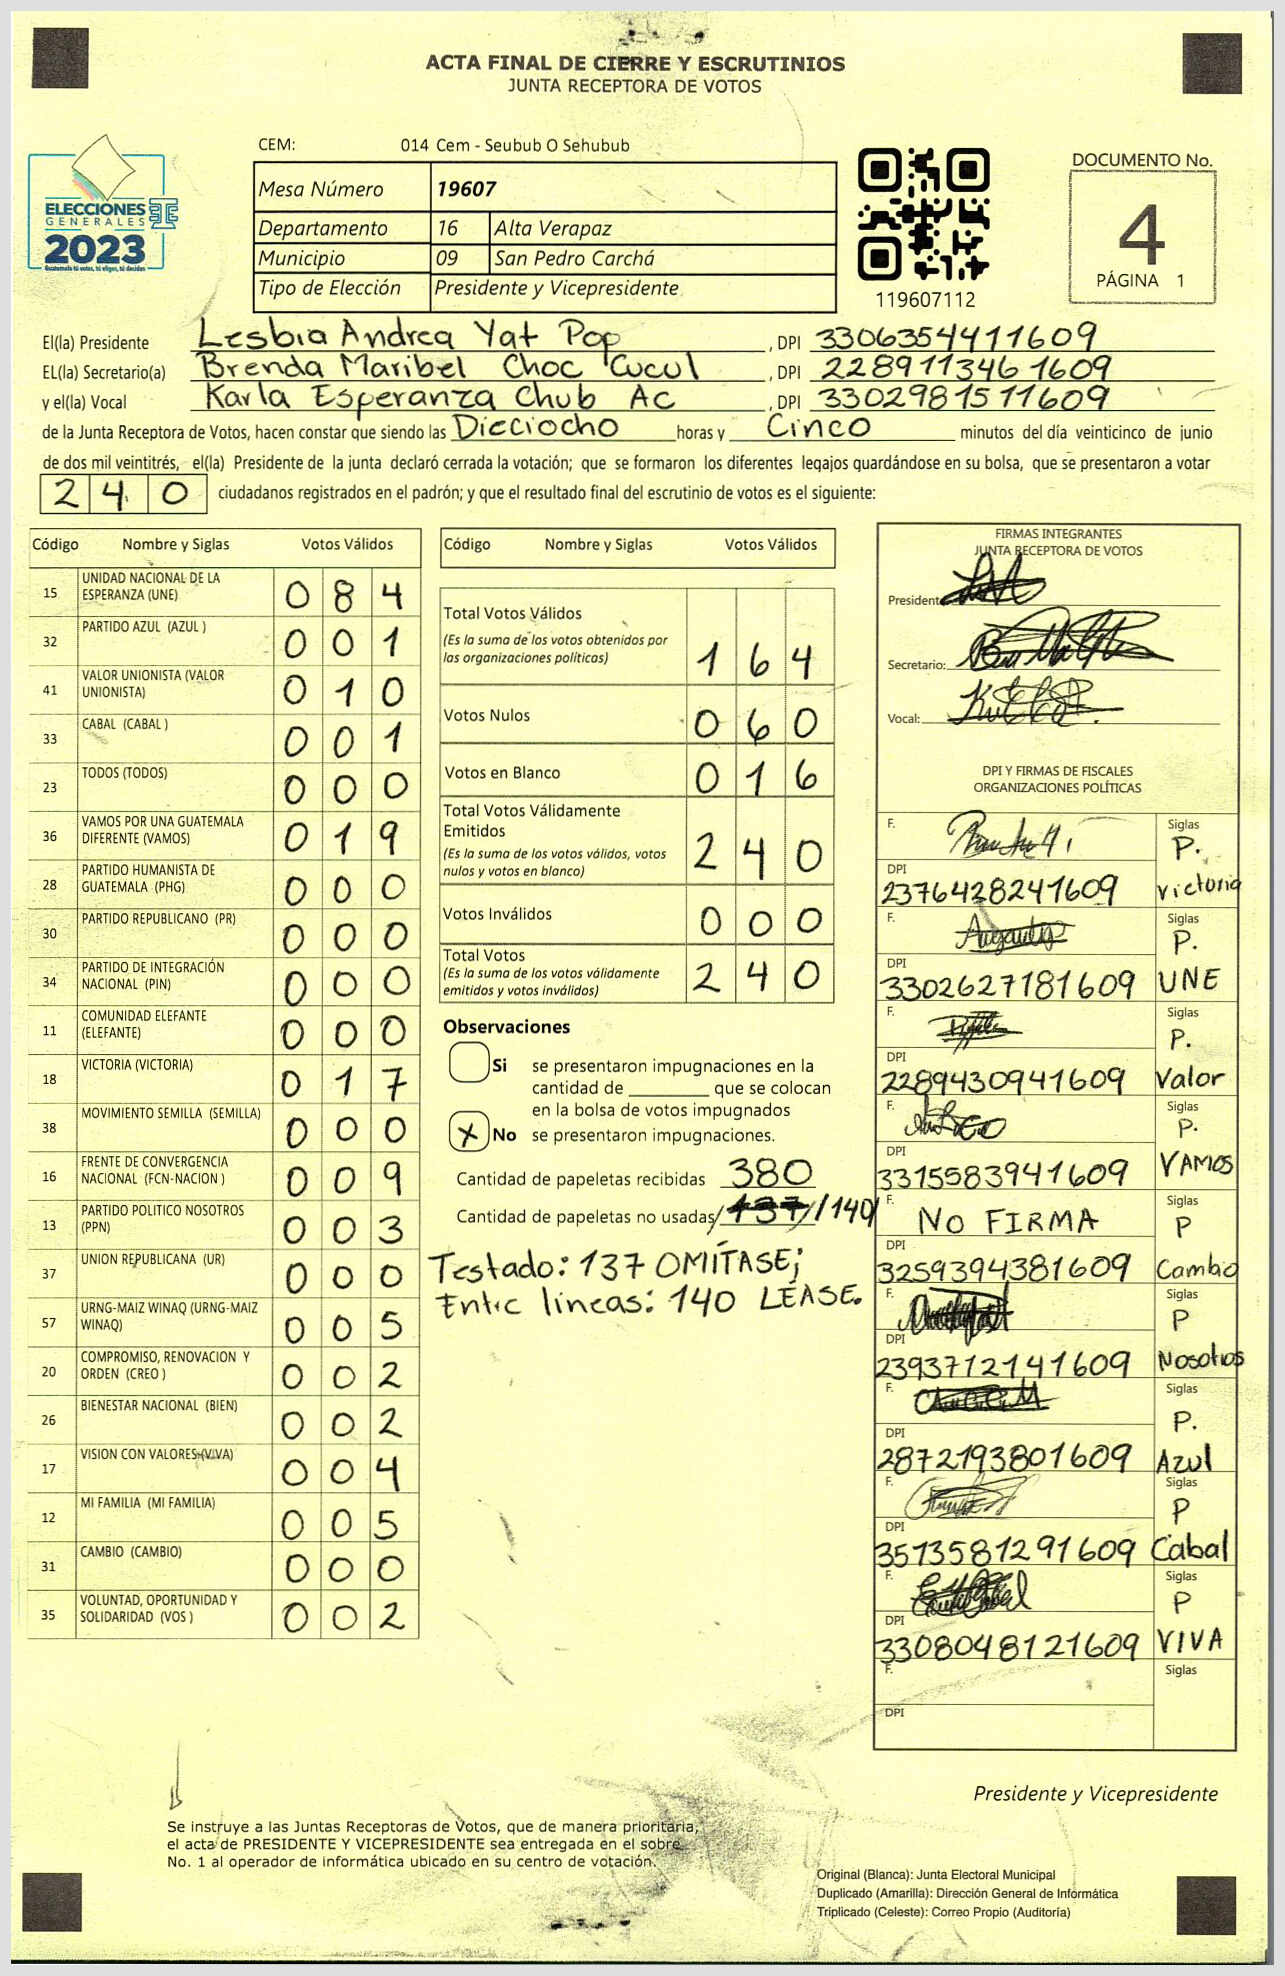 ACTA FINAL DE CIERRE Y ESCRUTINIOS
JUNTA RECEPTORA DE VOTOS
CEM: 014 Cem - Seubub O Sehubub
ELECCIONES
GENERALES
2023
Guatemala tú votas, tú eliges, tú decides
Mesa Número 19607
Departamento 16 Alta Verapaz
Municipio 09 San Pedro Carchá
Tipo de Elección Presidente y Vicepresidente
119607112
DOCUMENTO No.
4
PÁGINA 1
El(la) Presidente Lesbia Andrea Yat Pop, DPI 3306354411609
EL(la) Secretario(a) Brenda Maribel Choc Cucul, DPI 2289113461609
y el(la) Vocal Karla Esperanza Chub Ac, DPI 3302981511609
de la Junta Receptora de Votos, hacen constar que siendo las Dieciocho horas y Cinco minutos del día veinticinco de junio
de dos mil veintitrés, el(la) Presidente de la junta declaró cerrada la votación; que se formaron los diferentes legajos guardándose en su bolsa, que se presentaron a votar
240 ciudadanos registrados en el padrón; y que el resultado final del escrutinio de votos es el siguiente:
Código Nombre y Siglas Votos Válidos
15 UNIDAD NACIONAL DE LA ESPERANZA (UNE) 084
32 PARTIDO AZUL (AZUL ) 001
41 VALOR UNIONISTA (VALOR UNIONISTA) 010
33 CABAL (CABAL ) 001
23 TODOS (TODOS) 000
36 VAMOS POR UNA GUATEMALA DIFERENTE (VAMOS) 019
28 PARTIDO HUMANISTA DE GUATEMALA (PHG) 000
30 PARTIDO REPUBLICANO (PR) 000
34 PARTIDO DE INTEGRACIÓN NACIONAL (PIN) 000
11 COMUNIDAD ELEFANTE (ELEFANTE) 000
18 VICTORIA (VICTORIA) 017
38 MOVIMIENTO SEMILLA (SEMILLA) 000
16 FRENTE DE CONVERGENCIA NACIONAL (FCN-NACION ) 009
13 PARTIDO POLITICO NOSOTROS (PPN) 003
37 UNION REPUBLICANA (UR) 000
57 URNG-MAIZ WINAQ (URNG-MAIZ WINAQ) 005
20 COMPROMISO, RENOVACION Y ORDEN (CREO ) 002
26 BIENESTAR NACIONAL (BIEN) 002
17 VISION CON VALORES (VIVA) 004
12 MI FAMILIA (MI FAMILIA) 005
31 CAMBIO (CAMBIO) 000
35 VOLUNTAD, OPORTUNIDAD Y SOLIDARIDAD (VOS ) 002
Código Nombre y Siglas Votos Válidos
Total Votos Válidos
(Es la suma de los votos obtenidos por
las organizaciones políticas) 164
Votos Nulos 060
Votos en Blanco 016
Total Votos Válidamente
Emitidos
(Es la suma de los votos válidos, votos
nulos y votos en blanco) 240
Votos Inválidos 000
Total Votos
(Es la suma de los votos válidamente
emitidos y votos inválidos) 240
Observaciones
Si se presentaron impugnaciones en la
cantidad de ________ que se colocan
en la bolsa de votos impugnados
X No se presentaron impugnaciones.
Cantidad de papeletas recibidas 380
Cantidad de papeletas no usadas /137//140/
Testado: 137 OMÍTASE;
Entre líneas: 140 LÉASE.
FIRMAS INTEGRANTES
JUNTA RECEPTORA DE VOTOS
Presidente:
Secretario:
Vocal:
DPI Y FIRMAS DE FISCALES
ORGANIZACIONES POLÍTICAS
F. Siglas P.
DPI 2376428241609 Victoria
F. Siglas P.
DPI 3302627181609 UNE
F. Siglas P.
DPI 2289430941609 Valor
F. Siglas P.
DPI 3315583941609 VAMOS
F. NO FIRMA Siglas P
DPI 3259394381609 Cambio
F. Siglas P
DPI 2393712141609 Nosotros
F. Siglas P.
DPI 2872193801609 Azul
F. Siglas P
DPI 3513581291609 Cabal
F. Siglas P
DPI 3308048121609 VIVA
F. Siglas
DPI
Presidente y Vicepresidente
Se instruye a las Juntas Receptoras de Votos, que de manera prioritaria,
el acta de PRESIDENTE Y VICEPRESIDENTE sea entregada en el sobre
No. 1 al operador de informática ubicado en su centro de votación.
Original (Blanca): Junta Electoral Municipal
Duplicado (Amarilla): Dirección General de Informática
Triplicado (Celeste): Correo Propio (Auditoría)